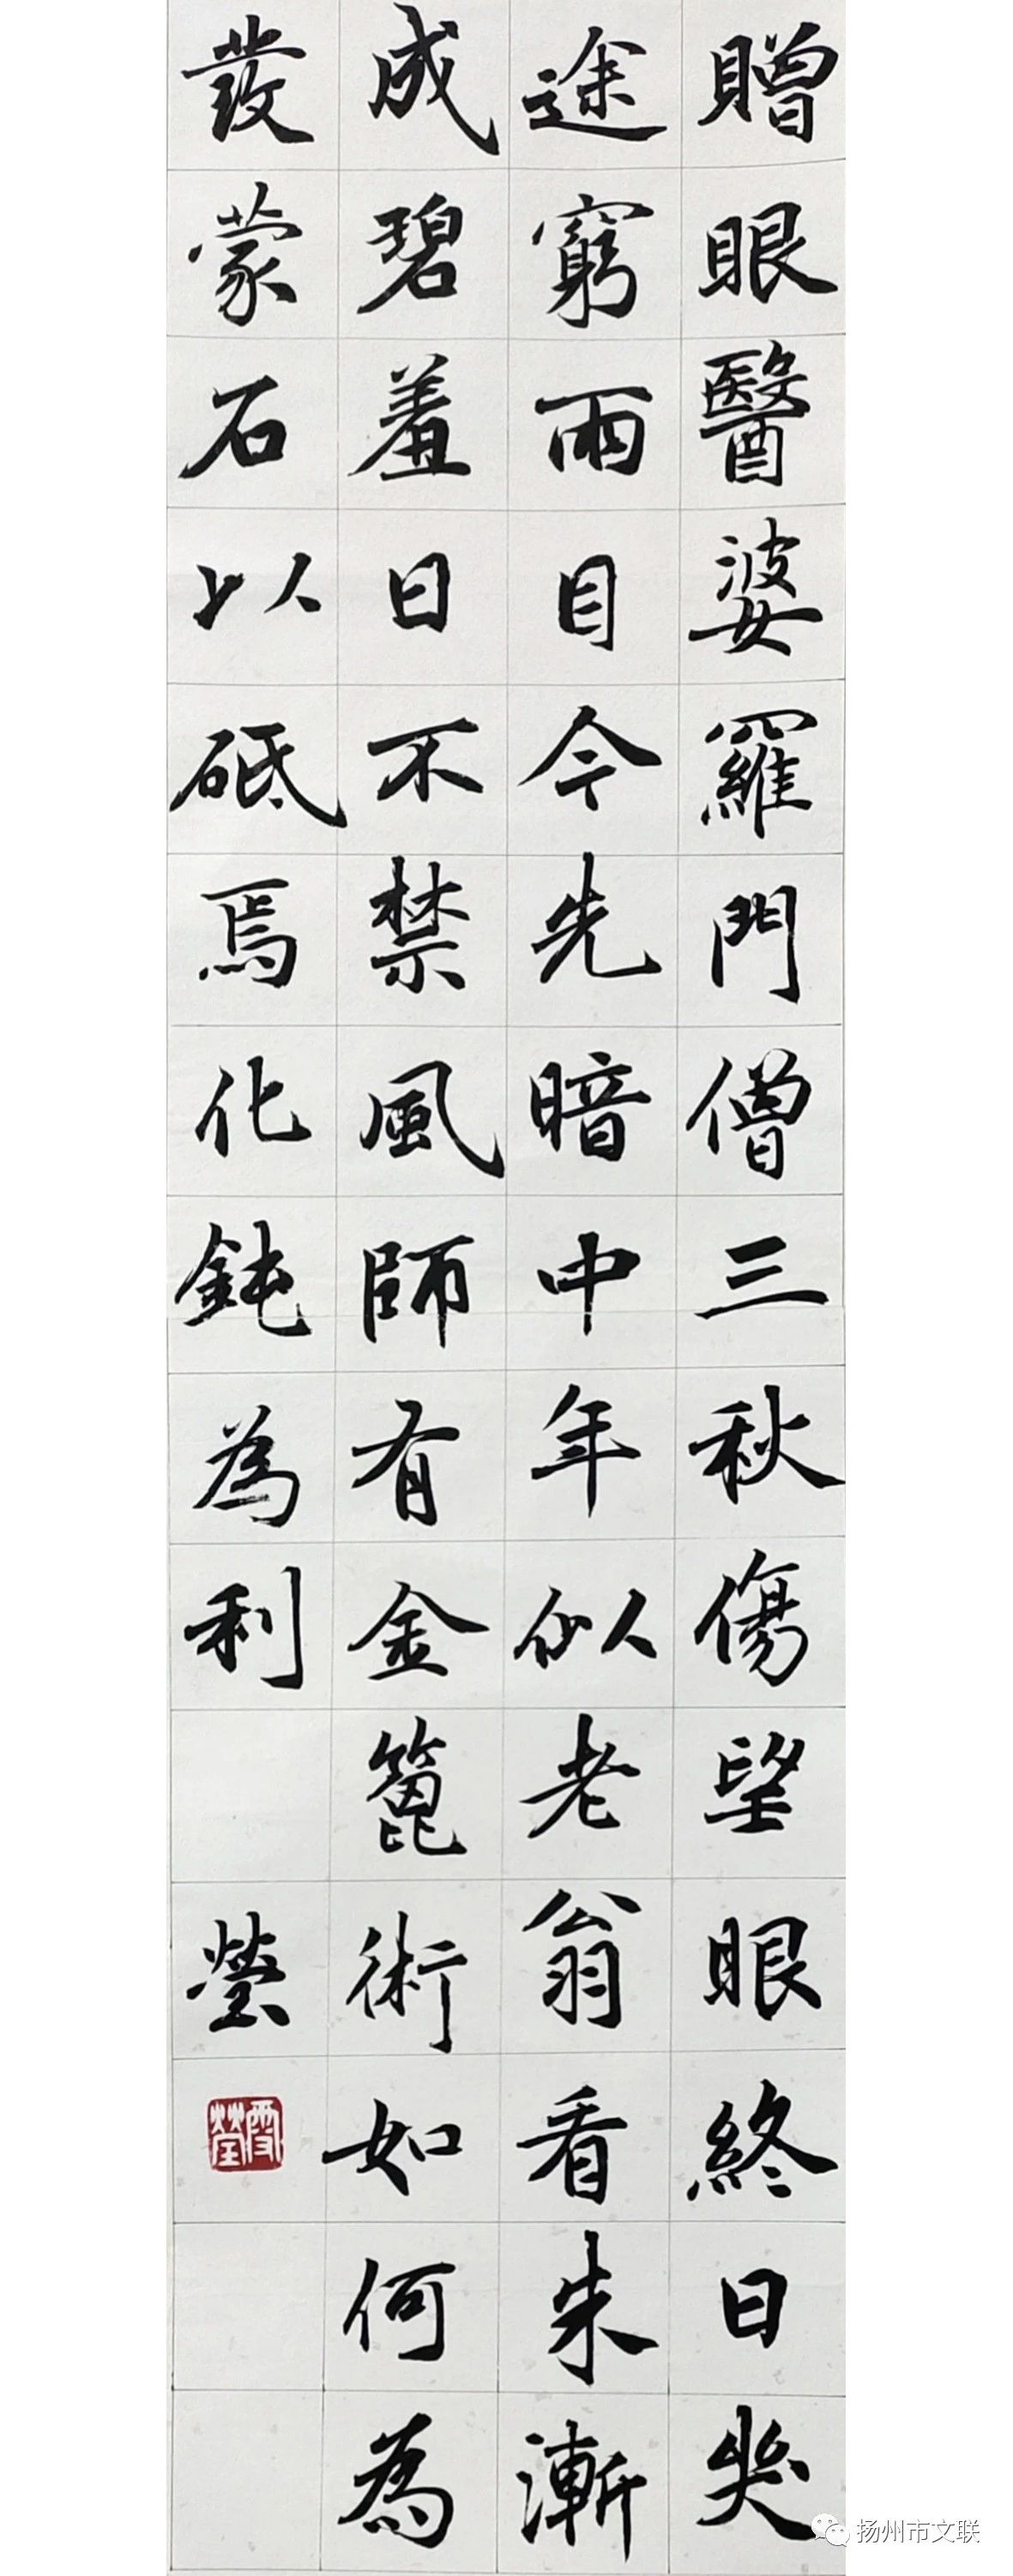 贈眼醫婆羅門僧三秋傷望眼終日哭
途窮兩目今先暗中年似老翁看朱漸
成碧羞日不禁風師有金篦術如何為
發蒙石以砥焉化鈍為利
瑩
扬州市文联